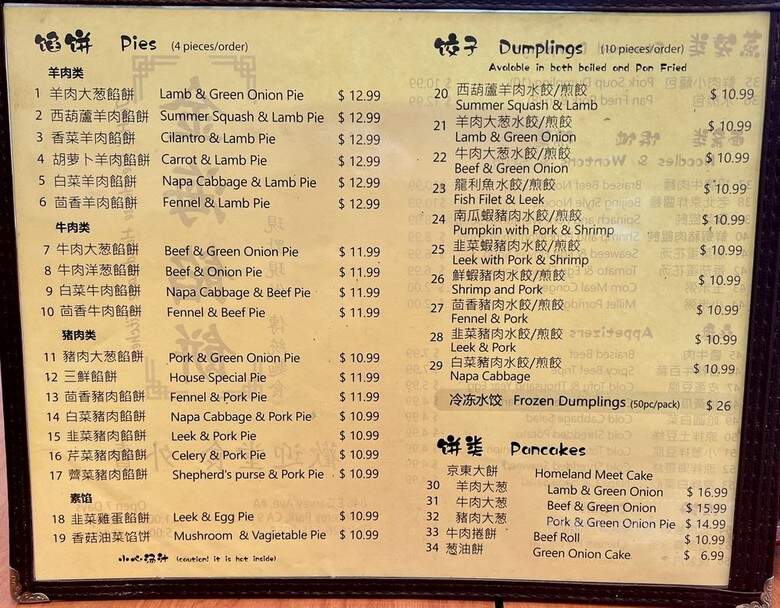 馅饼 Pies (4 pieces/order)
羊肉类
1 羊肉大葱餡餅 Lamb & Green Onion Pie $ 12.99
2 西葫蘆羊肉餡餅 Summer Squash & Lamb Pie $ 12.99
3 香菜羊肉餡餅 Cilantro & Lamb Pie $ 12.99
4 胡萝卜羊肉餡餅 Carrot & Lamb Pie $ 12.99
5 白菜羊肉餡餅 Napa Cabbage & Lamb Pie $ 12.99
6 茴香羊肉餡餅 Fennel & Lamb Pie $ 12.99
牛肉类
7 牛肉大葱餡餅 Beef & Green Onion Pie $ 11.99
8 牛肉洋葱餡餅 Beef & Onion Pie $ 11.99
9 白菜牛肉餡餅 Napa Cabbage & Beef Pie $ 11.99
10 茴香牛肉餡餅 Fennel & Beef Pie $ 11.99
豬肉类
11 豬肉大葱餡餅 Pork & Green Onion Pie $ 10.99
12 三鮮餡餅 House Special Pie $ 11.99
13 茴香豬肉餡餅 Fennel & Pork Pie $ 11.99
14 白菜豬肉餡餅 Napa Cabbage & Pork Pie $ 10.99
15 韭菜豬肉餡餅 Leek & Pork Pie $ 10.99
16 芹菜豬肉餡餅 Celery & Pork Pie $ 10.99
17 薺菜豬肉餡餅 Shepherd's purse & Pork Pie $ 10.99
素馅
18 韭菜雞蛋餡餅 Leek & Egg Pie $ 10.99
19 香菇油菜馅饼 Mushroom & Vagietable Pie $ 10.99
小心湯汁 (caution! it is hot inside)
饺子 Dumplings (10 pieces/order)
Avalable in both boiled and Pan Fried
20 西葫蘆羊肉水餃/煎餃 $ 10.99
Summer Squash & Lamb
21 羊肉大葱水餃/煎餃 $ 10.99
Lamb & Green Onion
22 牛肉大葱水餃/煎餃 $ 10.99
Beef & Green Onion
23 龍利魚水餃/煎餃 $ 10.99
Fish Filet & Leek
24 南瓜蝦豬肉水餃/煎餃 $ 10.99
Pumpkin with Pork & Shrimp
25 韭菜蝦豬肉水餃/煎餃 $ 10.99
Leek with Pork & Shrimp
26 鮮蝦豬肉水餃/煎餃 $ 10.99
Shrimp and Pork
27 茴香豬肉水餃/煎餃 $ 10.99
Fennel & Pork
28 韭菜豬肉水餃/煎餃 $ 10.99
Leek & Pork
29 白菜豬肉水餃/煎餃 $ 10.99
Napa Cabbage
冷冻水饺 Frozen Dumplings (50pc/pack) $ 26
饼类 Pancakes
京東大餅 Homeland Meet Cake
30 羊肉大葱 Lamb & Green Onion $ 16.99
31 牛肉大葱 Beef & Green Onion $ 15.99
32 豬肉大葱 Pork & Green Onion Pie $ 14.99
33 牛肉捲餅 Beef Roll $ 10.99
34 葱油餅 Green Onion Cake $ 6.99